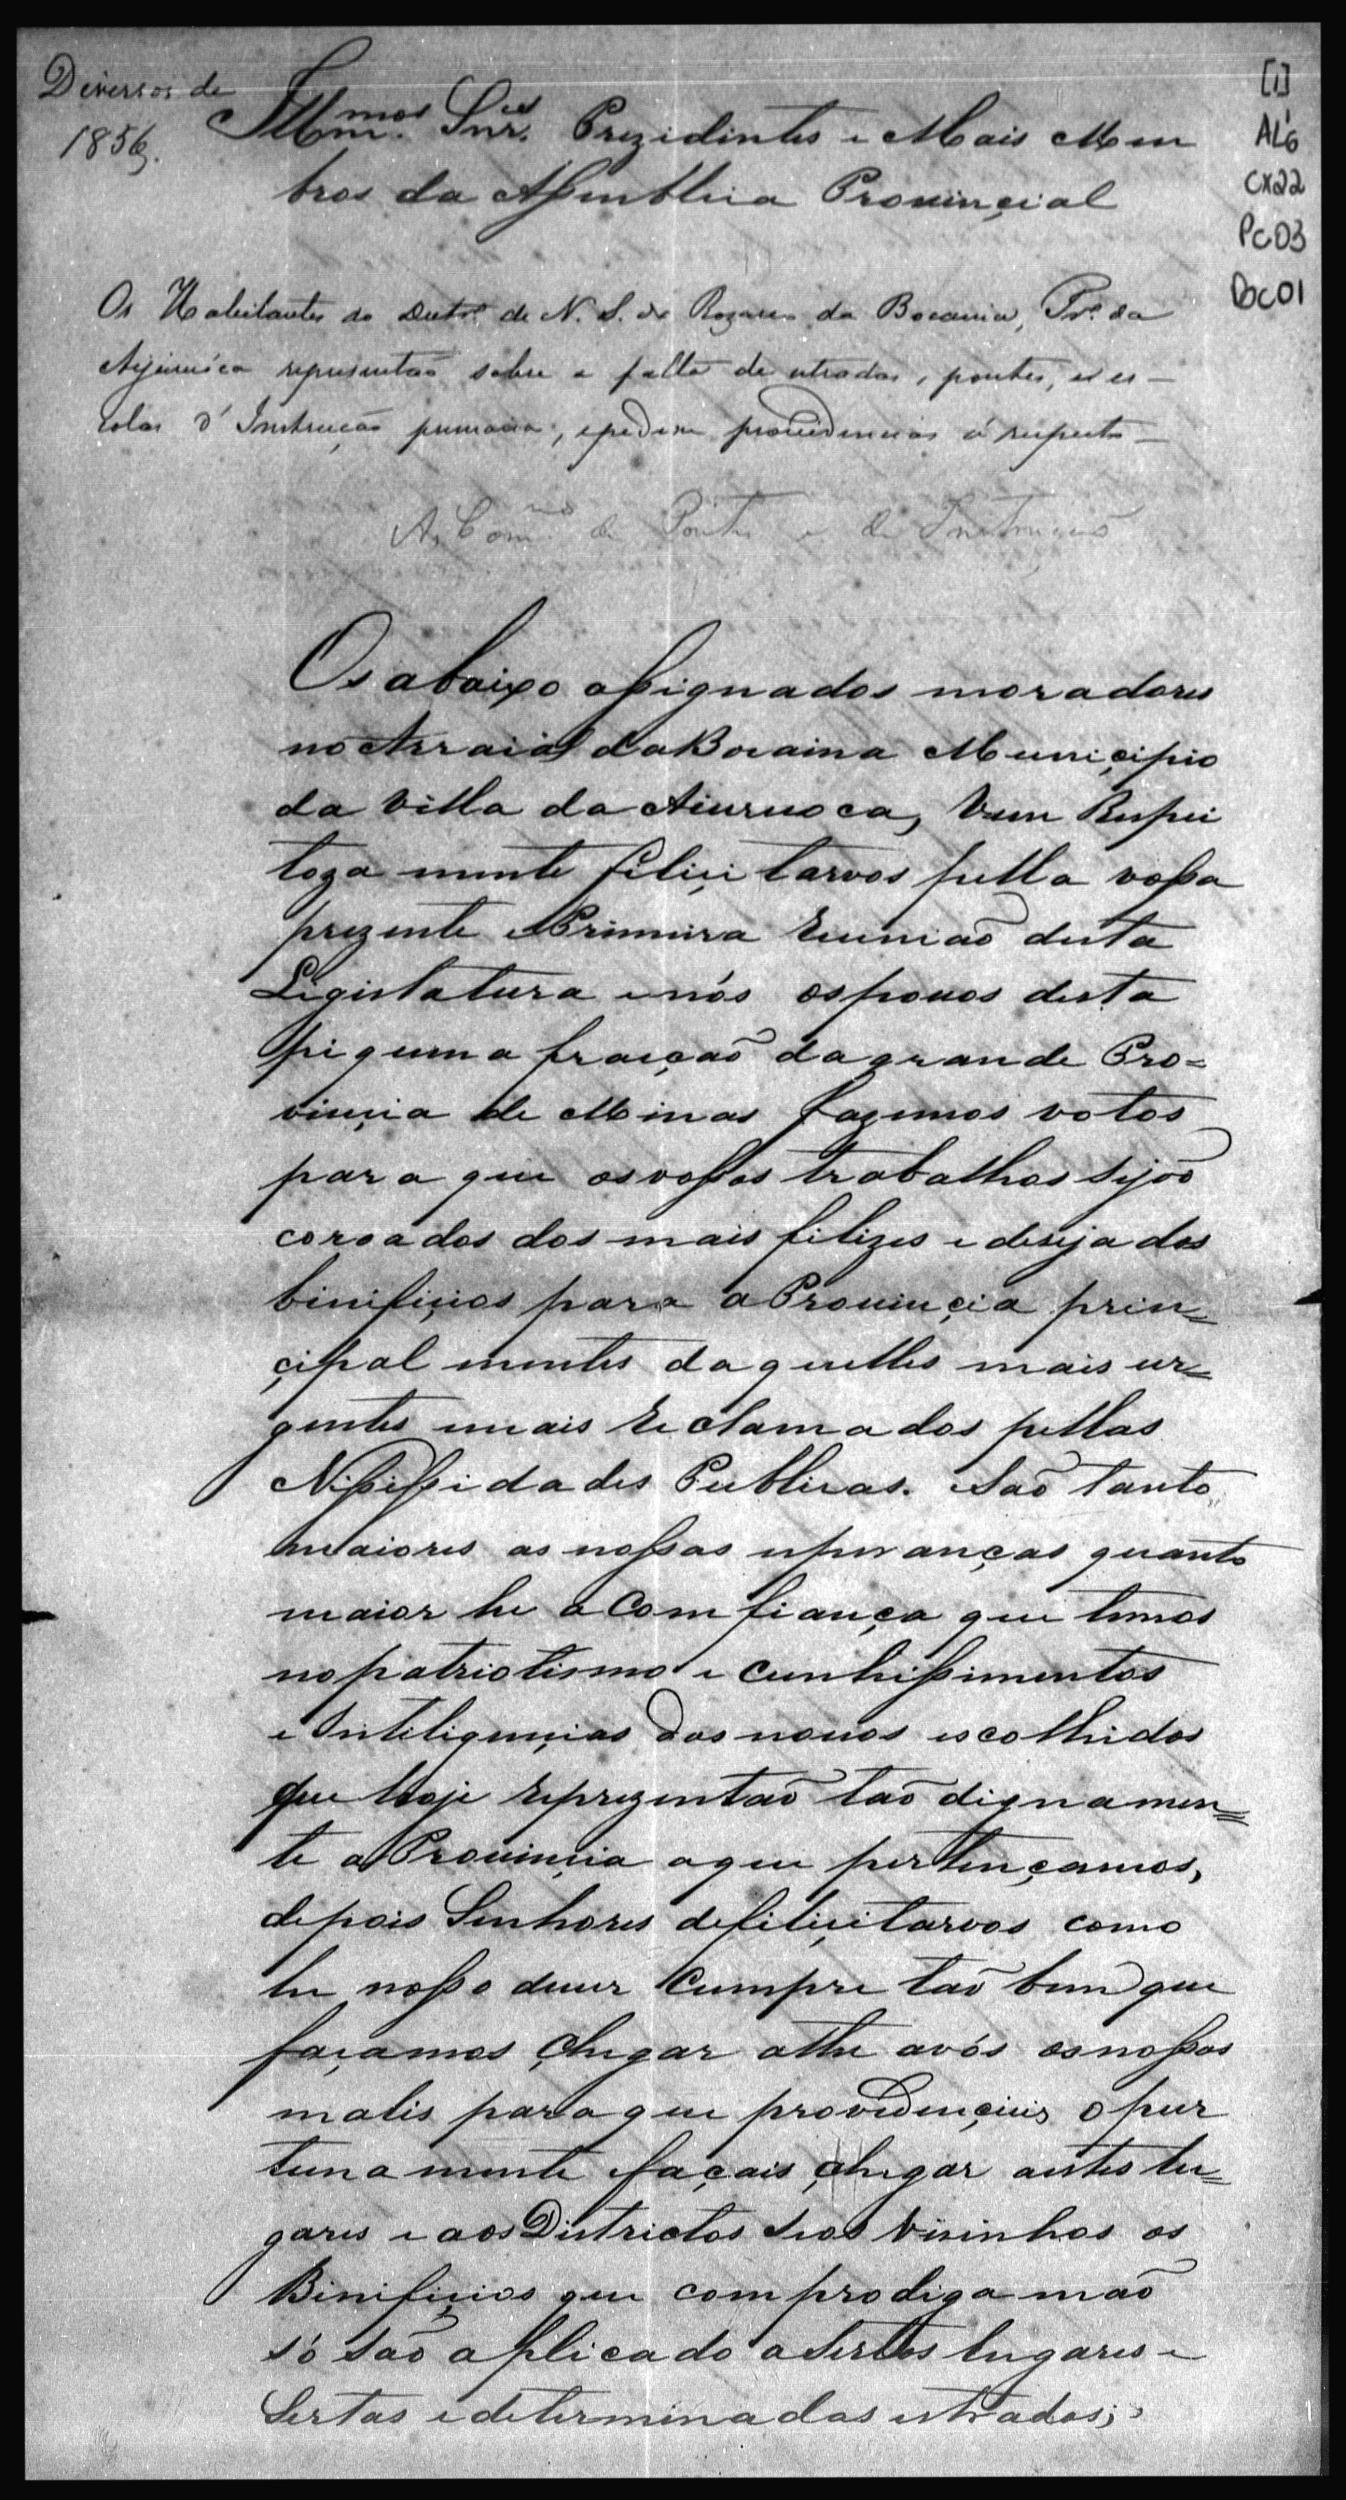 Diversos de
1856.
[1]
AL6
CX22
Pc03
Doc01
Illm.ᵐᵒˢ Snr.ᵉˢ Prezidintes e Mais Mem
bros da Assemblea Provinçial
Os Habitantes do Distr.º de N. S. do Rozario da Bocaina, Pr. da
Aijuruóca representão sobre a falta de estradas, pontes, e es-
colas d'Instrucção primaria, e pedem providencias á respeito-
As Com.ᵐᵒˢ de Pontes e de Instrução
Os abaixo assignados moradores
no Arraial da Bocaina Municipio
da Villa da Aiuruoca, Vem Respei
toza mente feliçi tarvos pella vossa
prezente e Primeira Reunião desta
Legistatura e nós os povos desta
piquena fraiçaõ da grande Pro=
vinçia de Minas fazemos votos
para que os vossos trabalhos sejão
coroados dos mais felizes e deseja dos
binifiçios para a Provinçia prin=
çipal mentes daquelles mais ur=
gentes e mais Reclama dos pellas
Nissessidades Publicas. São tanto
maiores as nossas esperanças quanto
maior he a Comfiança que temos
no patriotismo e Cunhissimentos
e Inteligençias dos novos escolhidos
que hoje Reprezentão tão dignamen=
te a Provinçia aque pertençamos,
depois Senhores de feliçitarvos como
he nosso dever Cumpre tão bem que
façamos çhegar athe avós os nossos
males para que providençieis opur
tuna mente façais çhegar a estes lu=
gares e aos Districtos seos Visinhos os
Binifiçios que com prodiga mão
só são aplicado a Sertos lugares e
Sertas e determinadas estradas;